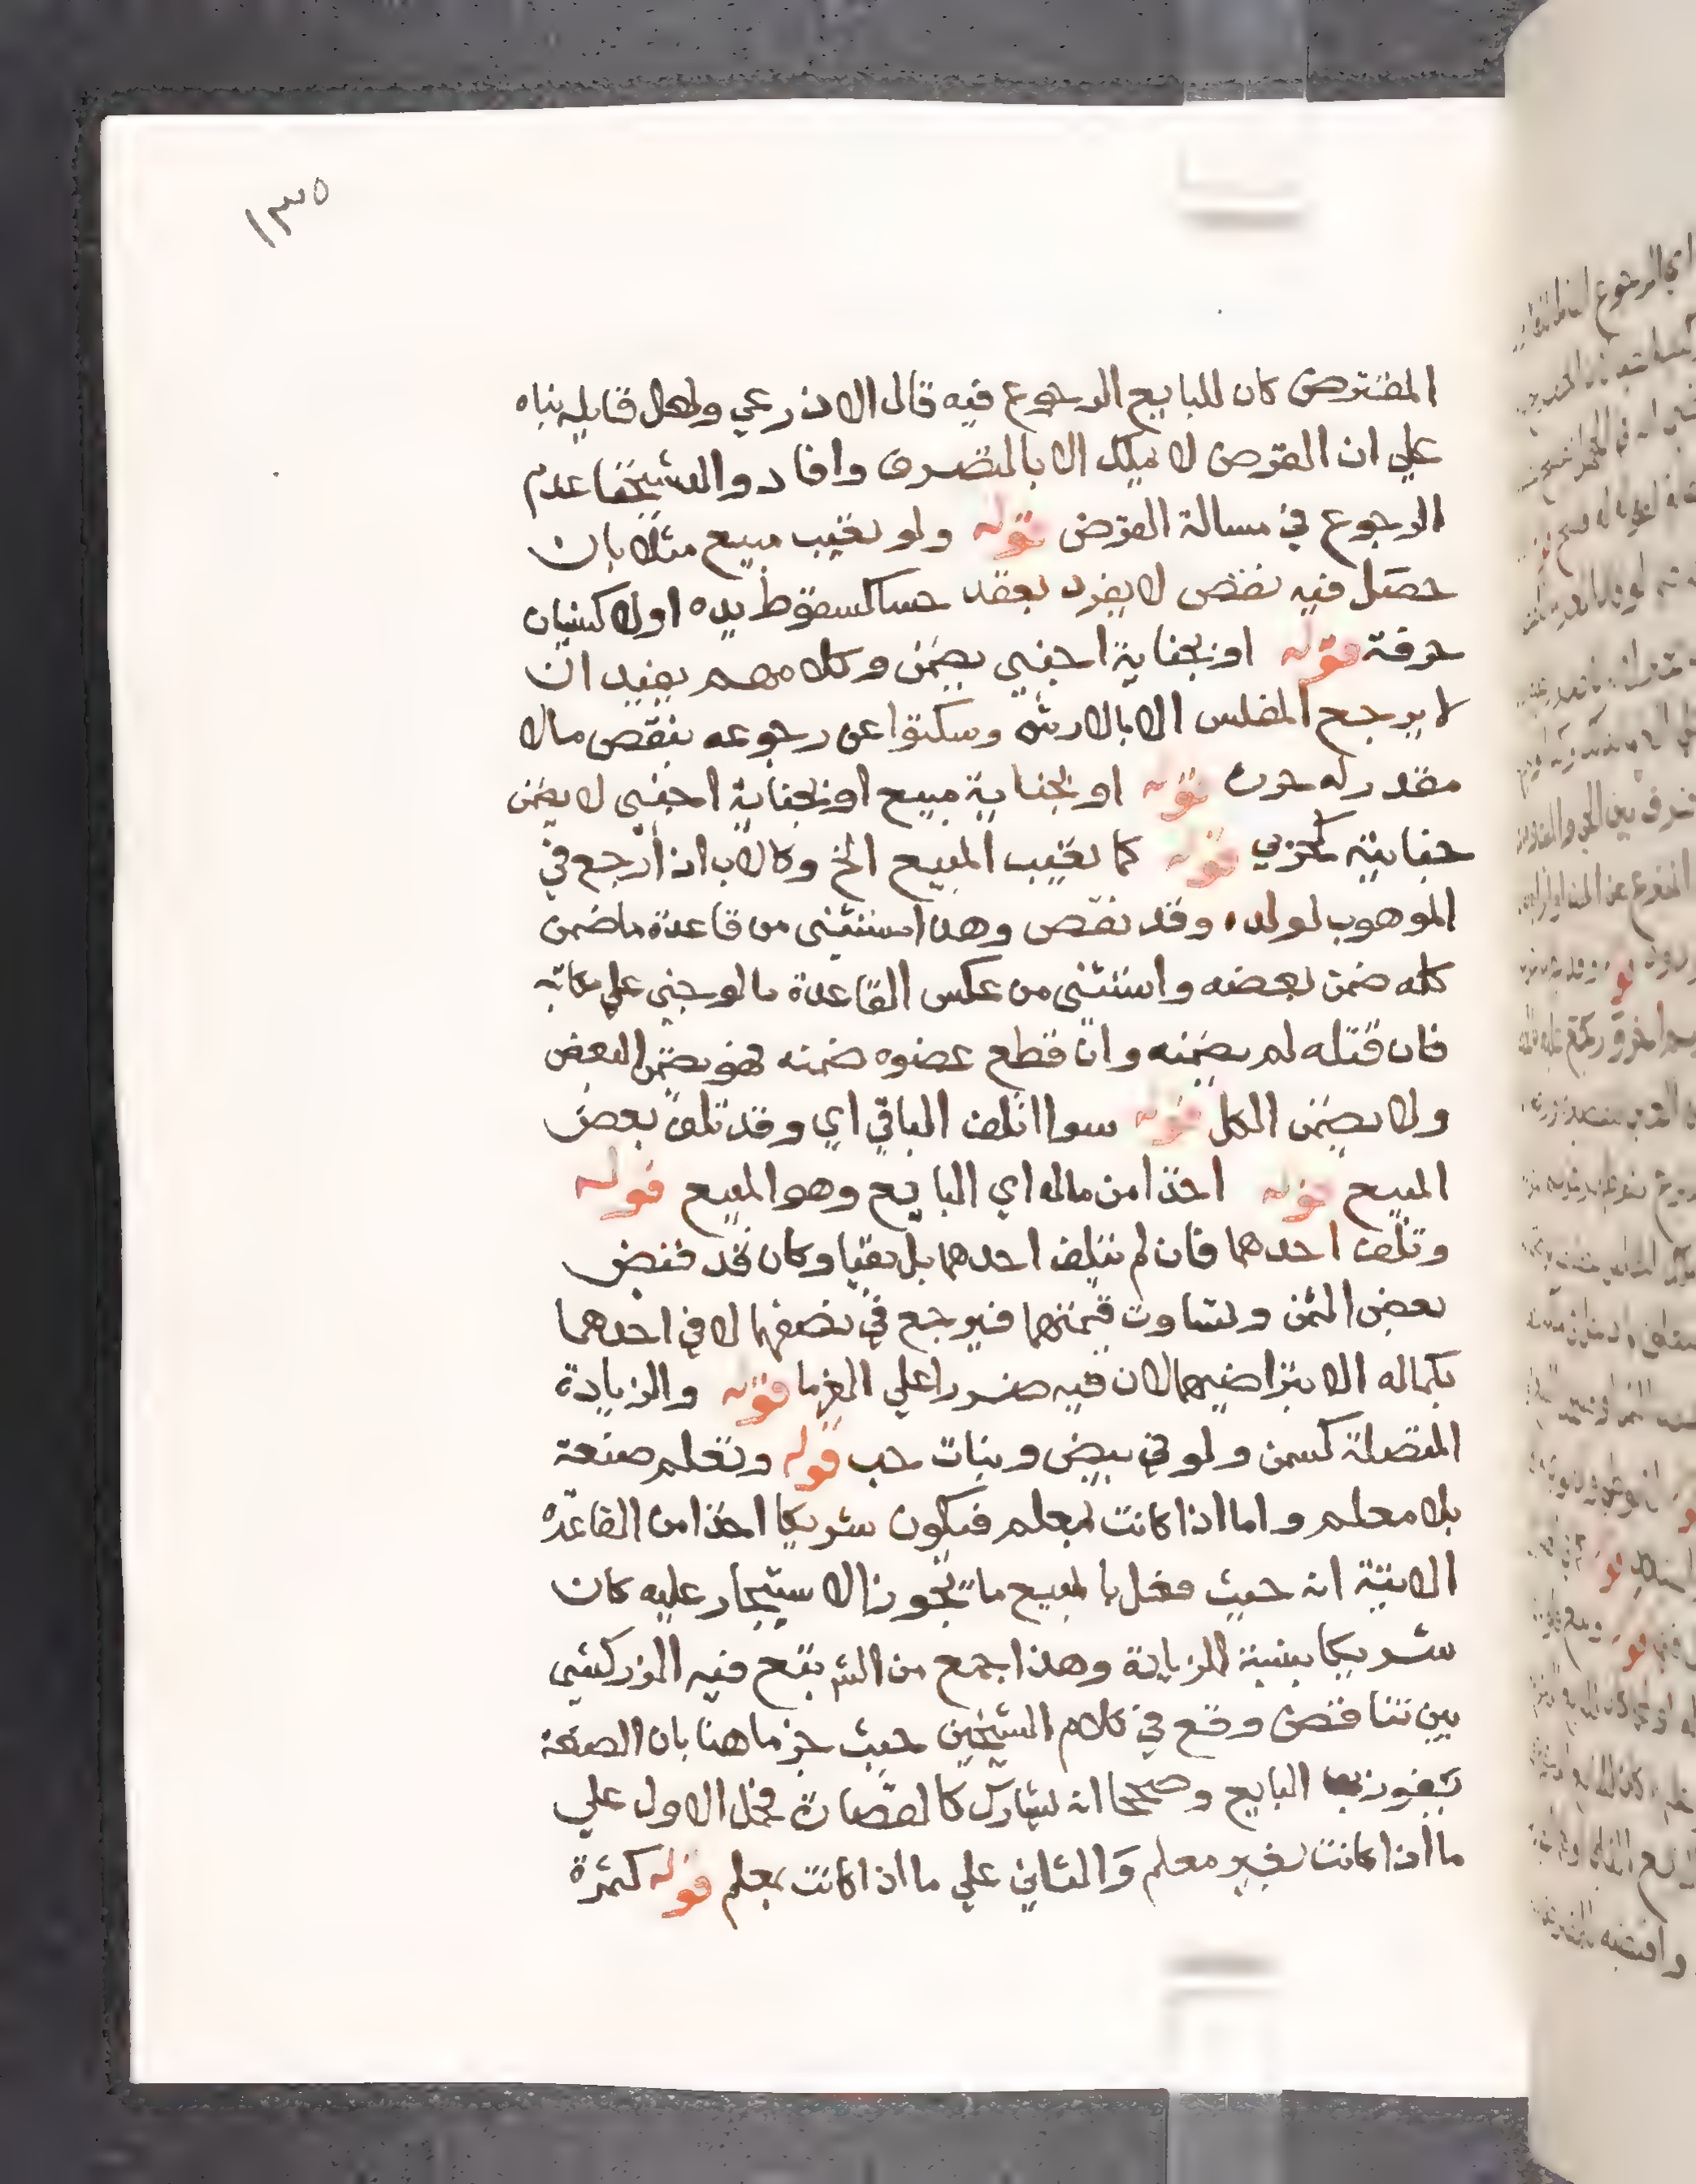 ١٣٥
المقترض كان للبايع الرجوع فيه قال الاذرعي ولعل قايله بناه
علي ان القرض لا يملك الا بالتصرف وافاد والد شيخنا عدم
الرجوع في مسالة القرض قوله ولو تعيب مبيع مثلا بان
حصل فيه نقص لا يفرد بعقد حسا كسقوط يده اولا كنسيان
حرفة قوله او بجناية اجنبي يضمن وكلامهم يفيد ان
لا يرجع المفلس الا بالارش وسكتوا عن رجوعه بنقص مالا
مقدر له قوله او بجناية مبيع او بجناية اجنبي لا يضمن
جنايته كحربي قوله كما تعيب المبيع الخ وكالاب اذا رجع في
الموهوب لولده وقد نقص وهذا مستثنى من قاعدة ما ضمن
كله ضمن بعضه واستثنى من عكس القاعدة ما لو جني علي مكاتبه
فان قتله لم يضمنه وان قطع عضوه ضمنه فهو يضمن البعض
ولا يضمن الكل قوله سوا اتلف الباقي اي وقد تلف بعض
المبيع قوله اخذا من ماله اي البايع وهو المبيع قوله
وتلف احدهما فان لم يتلف احدهما بل بقيا وكان قد قبض
بعض الثمن وتساوت قيمتهما فيرجع في نصفهما لا في احدهما
بكماله الا بتراضيهما لان فيه ضررا علي الغرما قوله والزيادة
المتصلة كسمن ولو في بيض ونبات حب قوله وتعلم صنعة
بلا معلم واما اذا كانت بمعلم فيكون شريكا اخذا من القاعدة
الاتية انه حيث فعل بالمبيع ما يجوز الاستيجار عليه كان
شريكا بنسبة الزيادة وهذا جمع من الش تبع فيه الزركشي
بين تناقض وقع في كلام الشيخين حيث جزما هنا بان الصنعة
يفوز بها البايع وصححا انه يشارك كالقصارة فحمل الاول علي
ما اذا كانت بغير معلم والثاني علي ما اذا كانت بمعلم قوله كثمرة